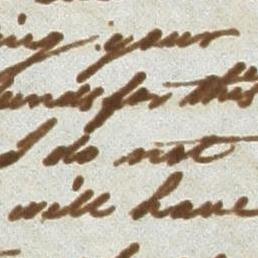 ing your
funds for this
I do not
will have